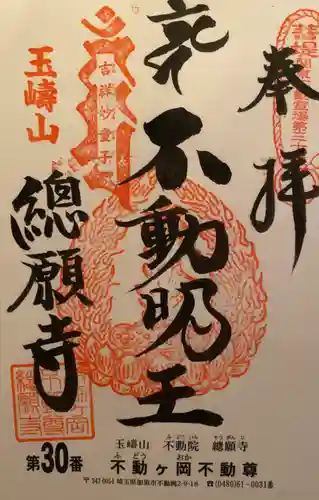 奉拝
不動明王
玉嶹山
總願寺
吉祥妙童子
玉嶹山 不動院 總願寺
不動ヶ岡不動尊
第30番
〒347-0054 埼玉県加須市不動岡2-9-18 ☎(0480)61-0031番